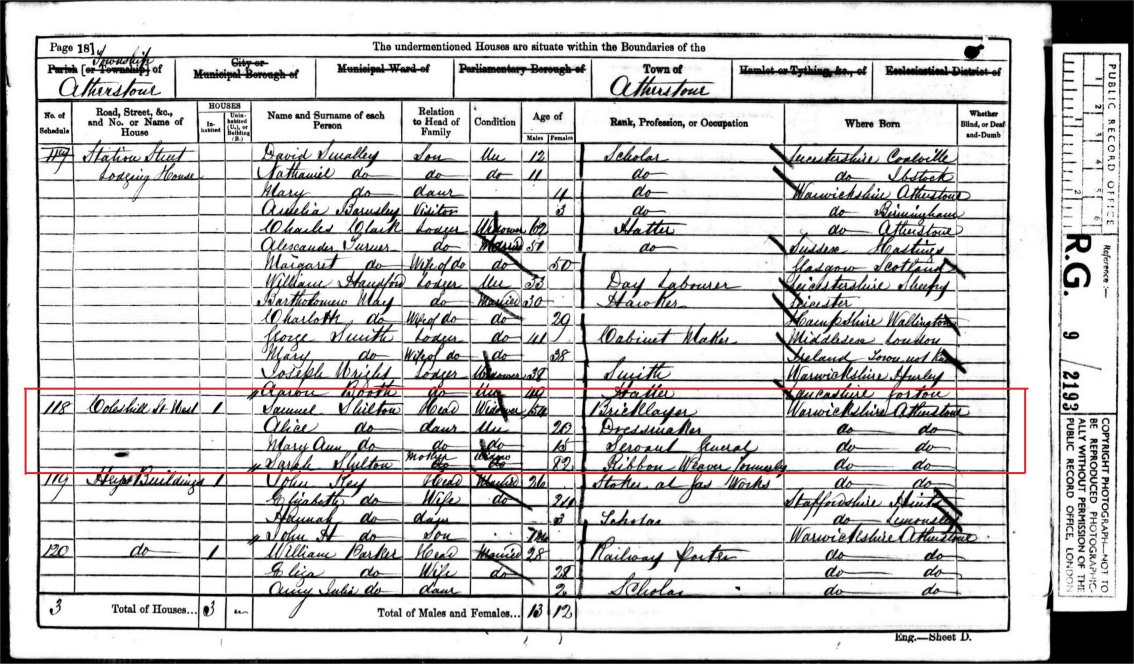 Page 18] The undermentioned Houses are situate within the Boundaries of the
Township
Parish [or Township] of City or Municipal Borough of Municipal Ward of Parliamentary Borough of Town of Hamlet or Tything, &c., of Ecclesiastical District of
Atherstone Atherstone
No. of Schedule Road, Street, &c., and No. or Name of House HOUSES Inhabited Uninhabited (U.), or Building (B.) Name and Surname of each Person Relation to Head of Family Condition Age of Males Females Rank, Profession, or Occupation Where Born Whether Blind, or Deaf-and-Dumb
117 Station Street David Smalley Son Un 12 Scholar Leicestershire Coalville
Lodging House Nathaniel do do 11 do do Ibstock
Mary do daur 4 do Warwickshire Atherstone
Amelia Barnsley Visitor 3 do do Birmingham
Charles Clark Lodger Widower 62 Hatter do Atherstone
Alexander Turner do Married 51 do Sussex Hastings
Margaret do Wife of do do 50 Glasgow Scotland
William Hansford Lodger Un 33 Day Labourer Leicestershire
Bartholomew May do Married 30 Hawker Leicester
Charlotte do Wife of do do 29 Hampshire Wallington
George Smith Lodger do 41 Cabinet Maker Middlesex London
Mary do Wife of do do 38 Ireland Town not
Joseph Wright Lodger Widower 38 Smith Warwickshire Hurley
Aaron Booth do Un 49 Hatter Lancashire
118 Coleshill St West 1 Samuel Shilton Head Widower 54 Bricklayer Warwickshire Atherstone
Alice do daur Un 20 Dressmaker do do
Mary Ann do do do 15 Servant General do do
Sarah Shilton Mother do 82 Ribbon Weaver Formerly do do
119 Buildings 1 John Key Head Married 26 Stoker at Gas Works do do
Elizabeth do Wife do 24 Staffordshire Hints
Hannah do daur 3 Scholar do
John H do Son Warwickshire Atherstone
120 do 1 William Parker Head Married 28 Railway Porter do do
Eliza do Wife do 28 do do
Amy Julia do daur 2 Scholar do do
3 Total of Houses... 3 Total of Males and Females... 13 12
Eng.—Sheet D.
PUBLIC RECORD OFFICE
1 2 3 4 5 6
Reference :—
R.G. 9 / 2193
COPYRIGHT PHOTOGRAPH—NOT TO BE REPRODUCED PHOTOGRAPHIC-
ALLY WITHOUT PERMISSION OF THE PUBLIC RECORD OFFICE, LONDON